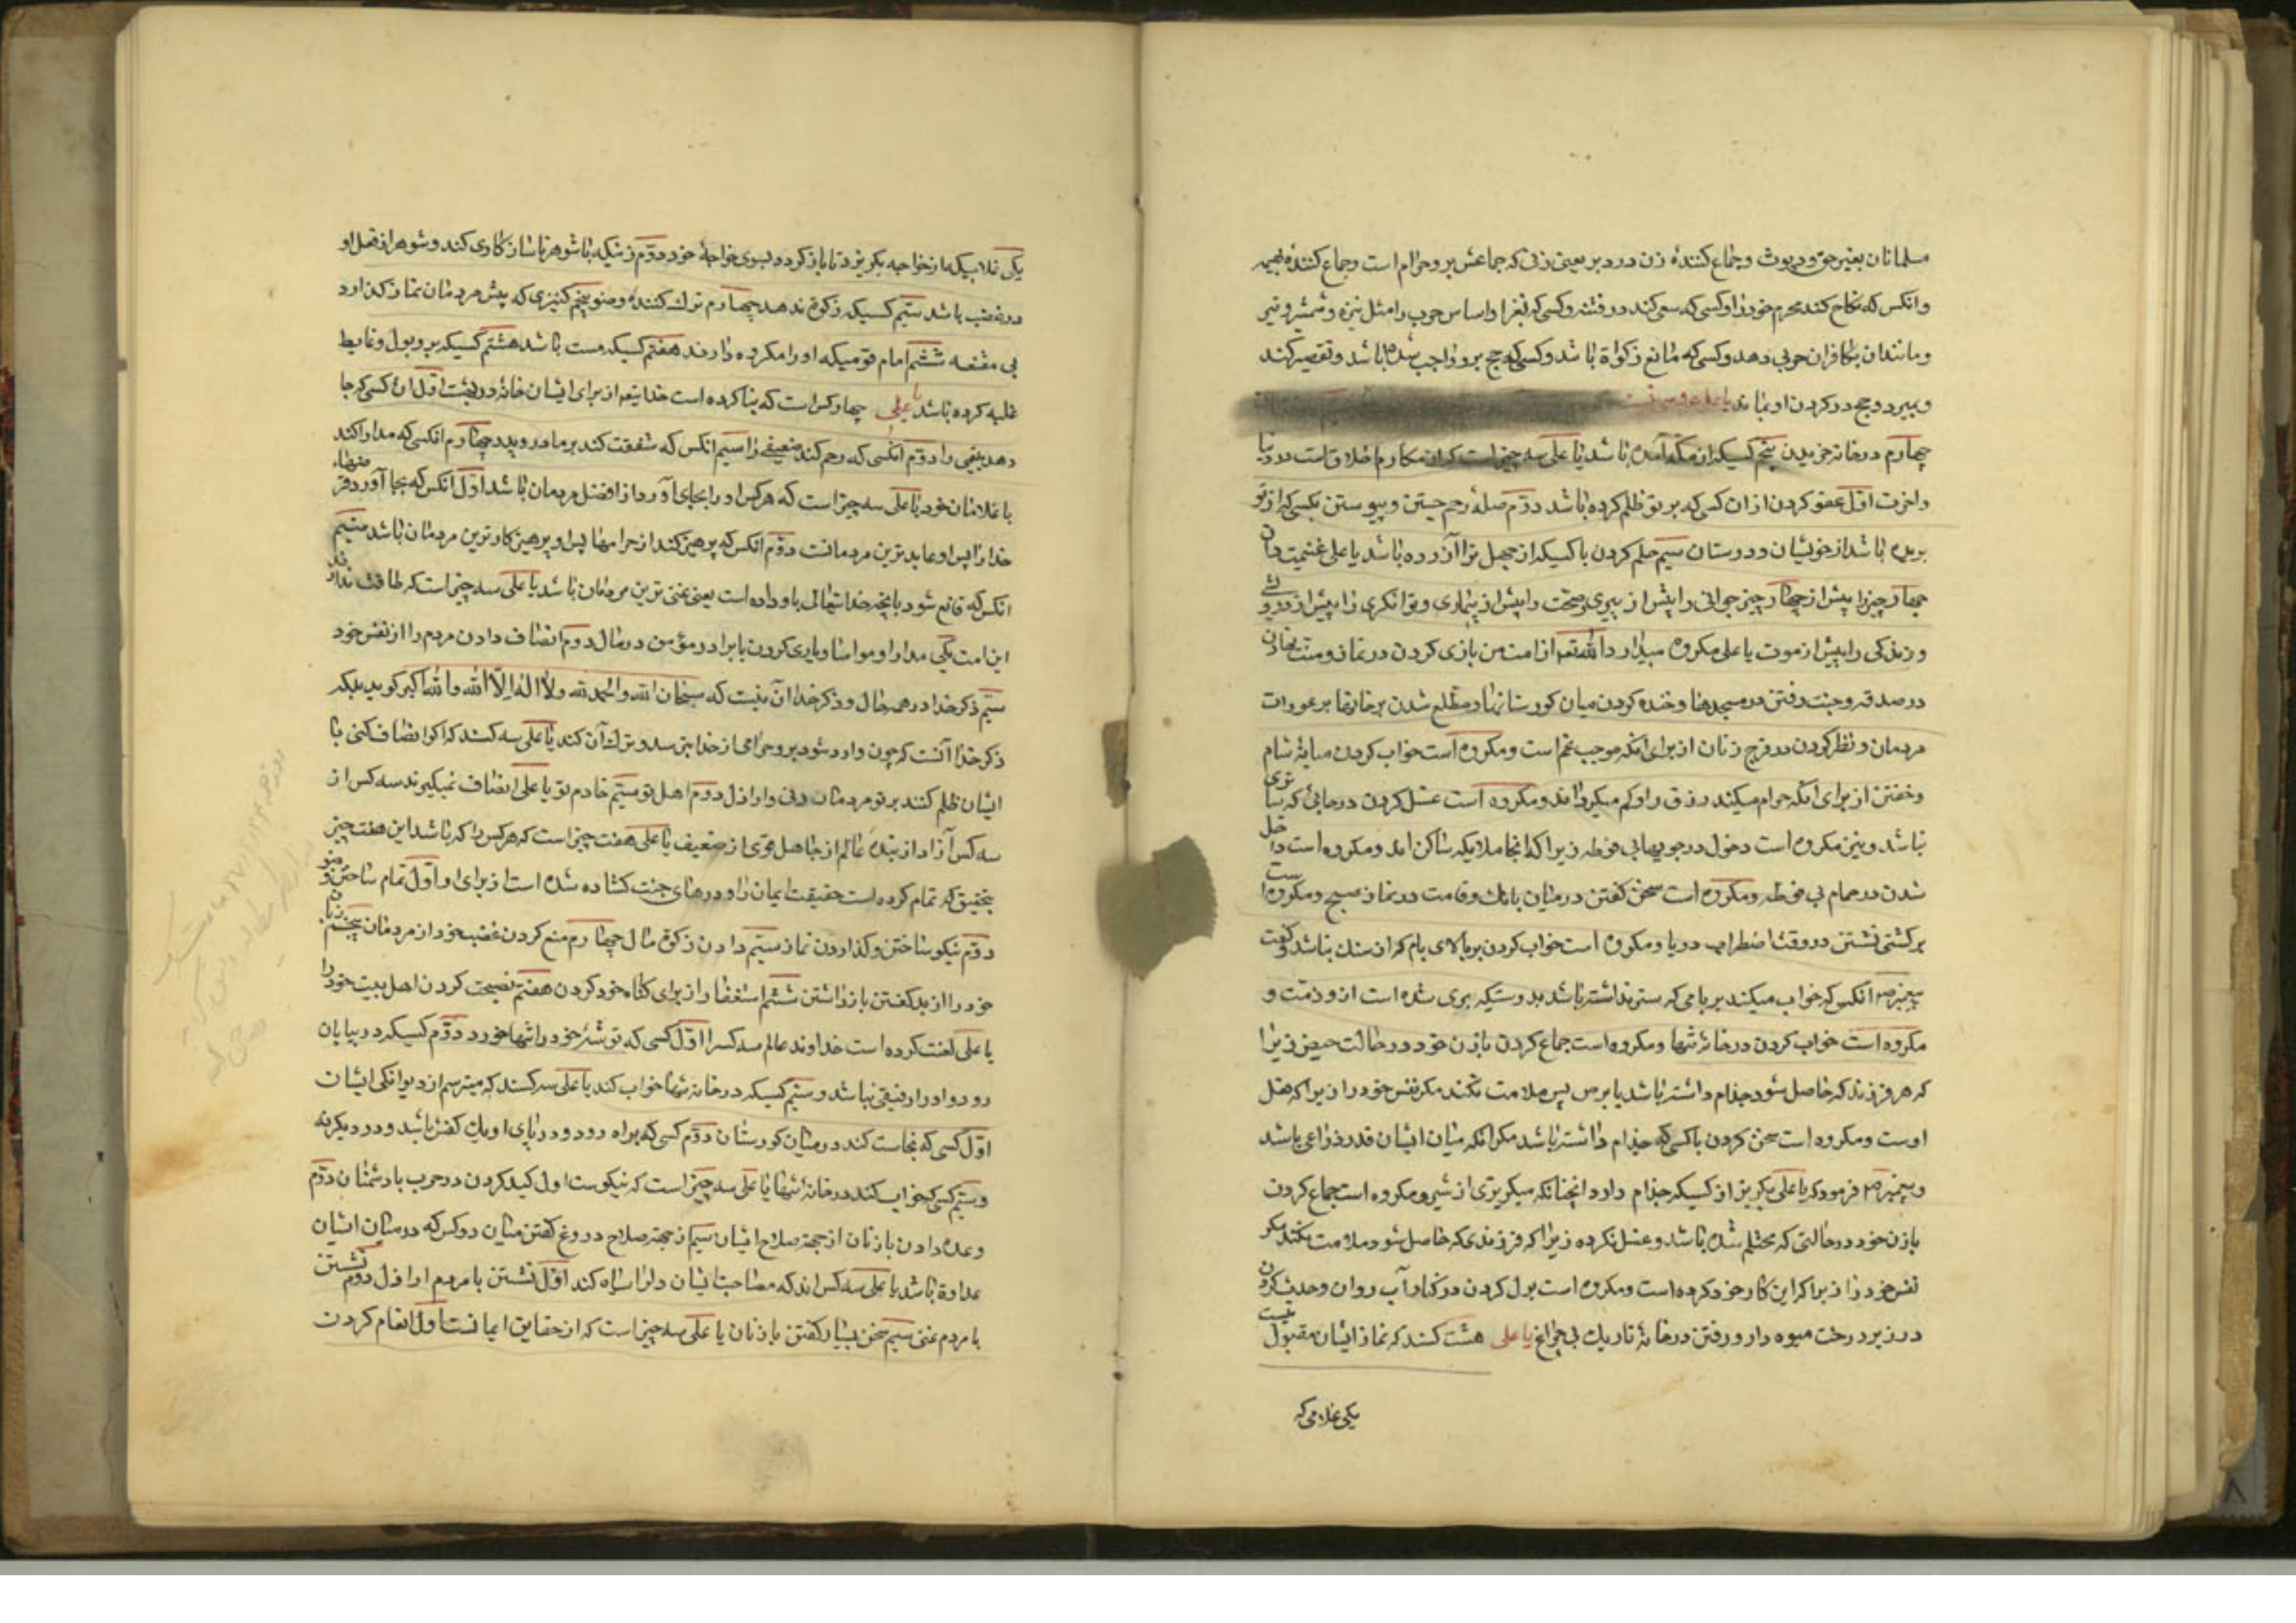 مسلمانان بغیر حق و دیوث و جماع کنندۀ زن در دبر یعنی زنی که جماعش بر و حرام است و جماع کنندۀ بهیمه
وانکس که نکاح کند محرم خود را و کسی که سعی کند در فتنه و کسی که بفزا و اساس حرب را مثل نیزه و شمشیر و تیر
و مانند ان بکافران حربی دهد و کسی که مانع زکواة باشد و کسی که حج بر و واجب شده باشد و تقصیر کند
و بمیرد و حج در کردن او بماند یا علی
چهارم در خانه خریدن پنجم کسیکه از مکه آمده باشد یا علی سه چیز است که از مکارم اخلاق است در دنیا
و اخرت اول عفو کردن از ان کسی که بر تو ظلم کرده باشد دوّم صلۀ رحم جستن و پیوستن بکسی که از تو
بریده باشد از خویشان و دوستان سیم حلم کردن با کسیکه از جهل ترا آزرده باشد یا علی غنیمت دان
چهار چیز را پیش از چهار چیز جوانی را پیش از پیری و صحت را پیش از بیماری و توانکری را پیش از درویشی
و زندکی را پیش از موت یا علی مکروه میدارد الله تعه از امت من بازی کردن در نماز و منت نهادن
در صدقه و جنب رفتن در مسجدها و خنده کردن میان کورستانها و مطلع شدن بر خانها بر عورات
مردمان و نظر کردن در فرج زنان از برای انکه موجب غم است و مکروه است خواب کردن میانۀ شام
و خفتن از برای انکه حرام میکند رزق را و کم میکرداند و مکروه است غسل کردن در جائی که ساتری
نباشد و نیز مکروه است دخول در جویها بی فوطه زیرا که انجا ملایکه ساکن اند و مکروه است داخل
شدن در حمام بی فوطه و مکروه است سخن کفتن در میان بانک و قامت در نماز صبح و مکروه است
بر کشتی نشستن در وقت اضطراب دریا و مکروه است خواب کردن بر بالای بام که از سنک نباشد و کفت
پیغمبر ص انکس که خواب میکند بر بامی که ستر نداشته باشد بدرستیکه بری شده است از و ذمت و
مکروه است خواب کردن در خانه تنها و مکروه است جماع کردن با زن خود در حالت حیض زیرا
که هر فرزند که حاصل شود جذام داشته باشد یا برص پس ملامت نکند مکر نفس خود را زیرا که فعل
اوست و مکروه است سخن کردن با کسی که جذام داشته باشد مکر انکه میان ایشان قدر ذراعی باشد
و پیغمبر ص فرمود که یا علی بکریز از کسیکه جذام دارد انچنانکه میکریزی از شیر و مکروه است جماع کردن
با زن خود در حالتی که محتلم شده باشد و غسل نکرده زیرا که فرزندی که حاصل شود ملامت نکند مکر
نفس خود را زیرا که این کار خود کرده است و مکروه است بول کردن در کنار آب روان و حدث کردن
در زیر درخت میوه دار و رفتن در خانۀ تاریک بی چراغ یا علی هشت کسند که نماز ایشان مقبول نیست
یکی غلامی که
یکی غلامیکه از خواجه بکریزد تا باز کردد بسوی خواجۀ خود دوّم زنیکه با شوهر ناسازکاری کند و شوهر از فعل او
در غضب باشد سیم کسیکه زکوة ندهد چهارم ترک کننده وضو پنجم کنیزی که پیش مردمان نماز کذارد
بی مقنعه ششم امام قومیکه او را مکروه دارند هفتم کسیکه مست باشد هشتم کسیکه بر و بول و غایط
غلبه کرده باشد یا علی چهار کس است که بنا کرده است خدایتعه از برای ایشان خانه در بهشت اول ان کسی که جا
دهد یتیمی را دوّم انکسی که رحم کند ضعیفی را سیم انکس که شفقت کند بر مادر و پدر چهارم انکسی که مدارا کند
با غلامان خود یا علی سه چیز است که هر کس او را بجای آورد از افضل مردمان باشد اوّل انکس که بجا آورد فرضهاء
خدا را پس او عابدترین مردمانست دوّم انکس که پرهیز کند از حرامها پس او پرهیزکارترین مردمان باشد سیّم
انکس که قانع شود بانچه خدایتعالی باو داده است یعنی غنی ترین مردمان باشد یا علی سه چیز است که طاقت ندارند
این امت یکی مدارا و مواسا و یاری کردن با برادر مؤمن در مال دوم انصاف دادن مردم را از نفس خود
سیّم ذکر خدا در همه حال و ذکر خدا آن نیست که سبحان الله والحمد لله ولا اله الا الله والله اکبر کوید بلکه
ذکر خدا آنست که چون وارد شود بر و حرامی از خدا بترسد و ترک آن کند یا علی سه کسند که اکر انصاف کنی با
ایشان ظلم کنند بر تو مردمان دنی و اراذل دوم اهل تو سیّم خادم تو یا علی انصاف نمیکیرند سه کس از
سه کس آزاد از بنده عالم از جاهل قوی از ضعیف یا علی هفت چیز است که هر کس را که باشد این هفت چیز
بتحقیق که تمام کرده است حقیقت ایمان را و درهای جنت کشاده شده است از برای او اوّل تمام ساختن وضو
دوّم نیکو ساختن و کذاردن نماز سیّم دادن زکوة مال چهارم منع کردن غضب خود از مردمان پنجم زبان
خود را از بد کفتن بازداشتن ششم استغفار از برای کناه خود کردن هفتم نصیحت کردن اهل بیت خود را
یا علی لعنت کرده است خداوند عالم سه کس را اوّل کسی که توشۀ خود را تنها خورد دوّم کسیکه در بیابان
رود و او را رفیقی نباشد و سیّم کسیکه در خانه تنها خواب کند یا علی سه کسند که میترسم از دیوانکی ایشان
اوّل کسی که نجاست کند در میان کورستان دوّم کسی که براه رود و در پای او یک کفش باشد و در دیکر نه
و سیّم کسی که خواب کند در خانه تنها یا علی سه چیز است که نیکوست اول کید کردن در حرب با دشمنان دوّم
وعده دادن با زنان از جهة صلاح ایشان سیّم از جهة صلاح دروغ کفتن میان دو کس که در میان ایشان
عداوة باشد یا علی سه کس اند که مصاحبت ایشان دلرا سیاه کند اوّل نشستن با مردم اراذل دوم نشستن
با مردم غنی سیّم سخن بسیار کفتن با زنان یا علی سه چیز است که از حقایق ایمانست اوّل انعام کردن